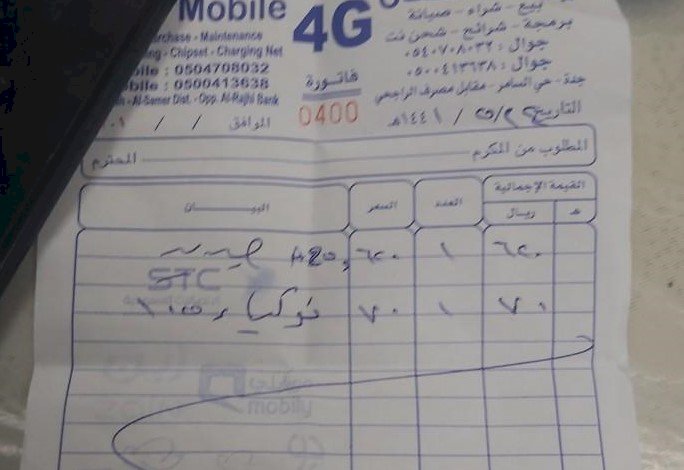 Mobile 4G
بيع - شراء - صيانة
Purchase - Maintenance
برمجة - شرائح - شحن نت
ing - Chipset - Charging Net
جوال : ٠٥٠٤٧٠٨٠٣٢
bile : 0504708032
جوال : ٠٥٠٠٤١٣٦٣٨
bile : 0500413638
فاتورة
جدة - حي السامر - مقابل مصرف الراجحي
Al-Samer Dist. - Opp. Al-Rajhi Bank
التاريخ / / ١٤٤١هـ
0400
الموافق / / ٢٠١
المطلوب من المكرم المحترم
القيمة الإجمالية العدد السعر البيـــــان
هـ ريال
٦٢٠ ١ ٦٢٠ A20s جديد
STC
٧٠ ١ ٧٠ نوكيا ١٠٥
موبايلي
mobily